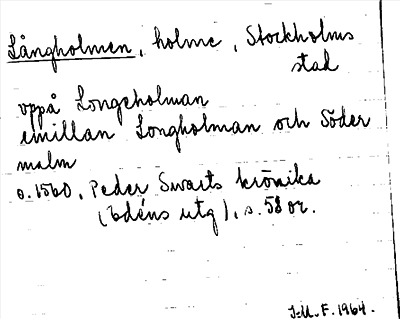 Långholmen, holme, Stockholms
stad
uppå Longeholman
emillan Longholman och Söder
malm
o. 1560, Peder Swarts krönika
(Edéns utg), s. 58 or.
I.M.F. 1964.